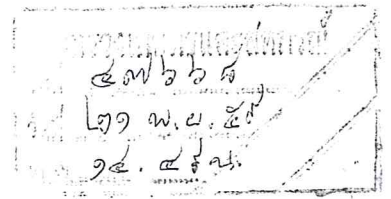 ๔๗๖๖๘
๒๑ พ.ย. ๕๙
๑๔.๔๕ น.